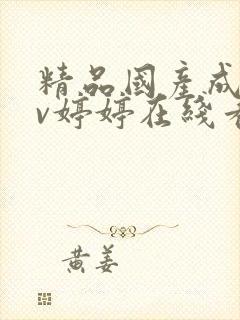 精品國產成
v婷婷在綫
黃姜